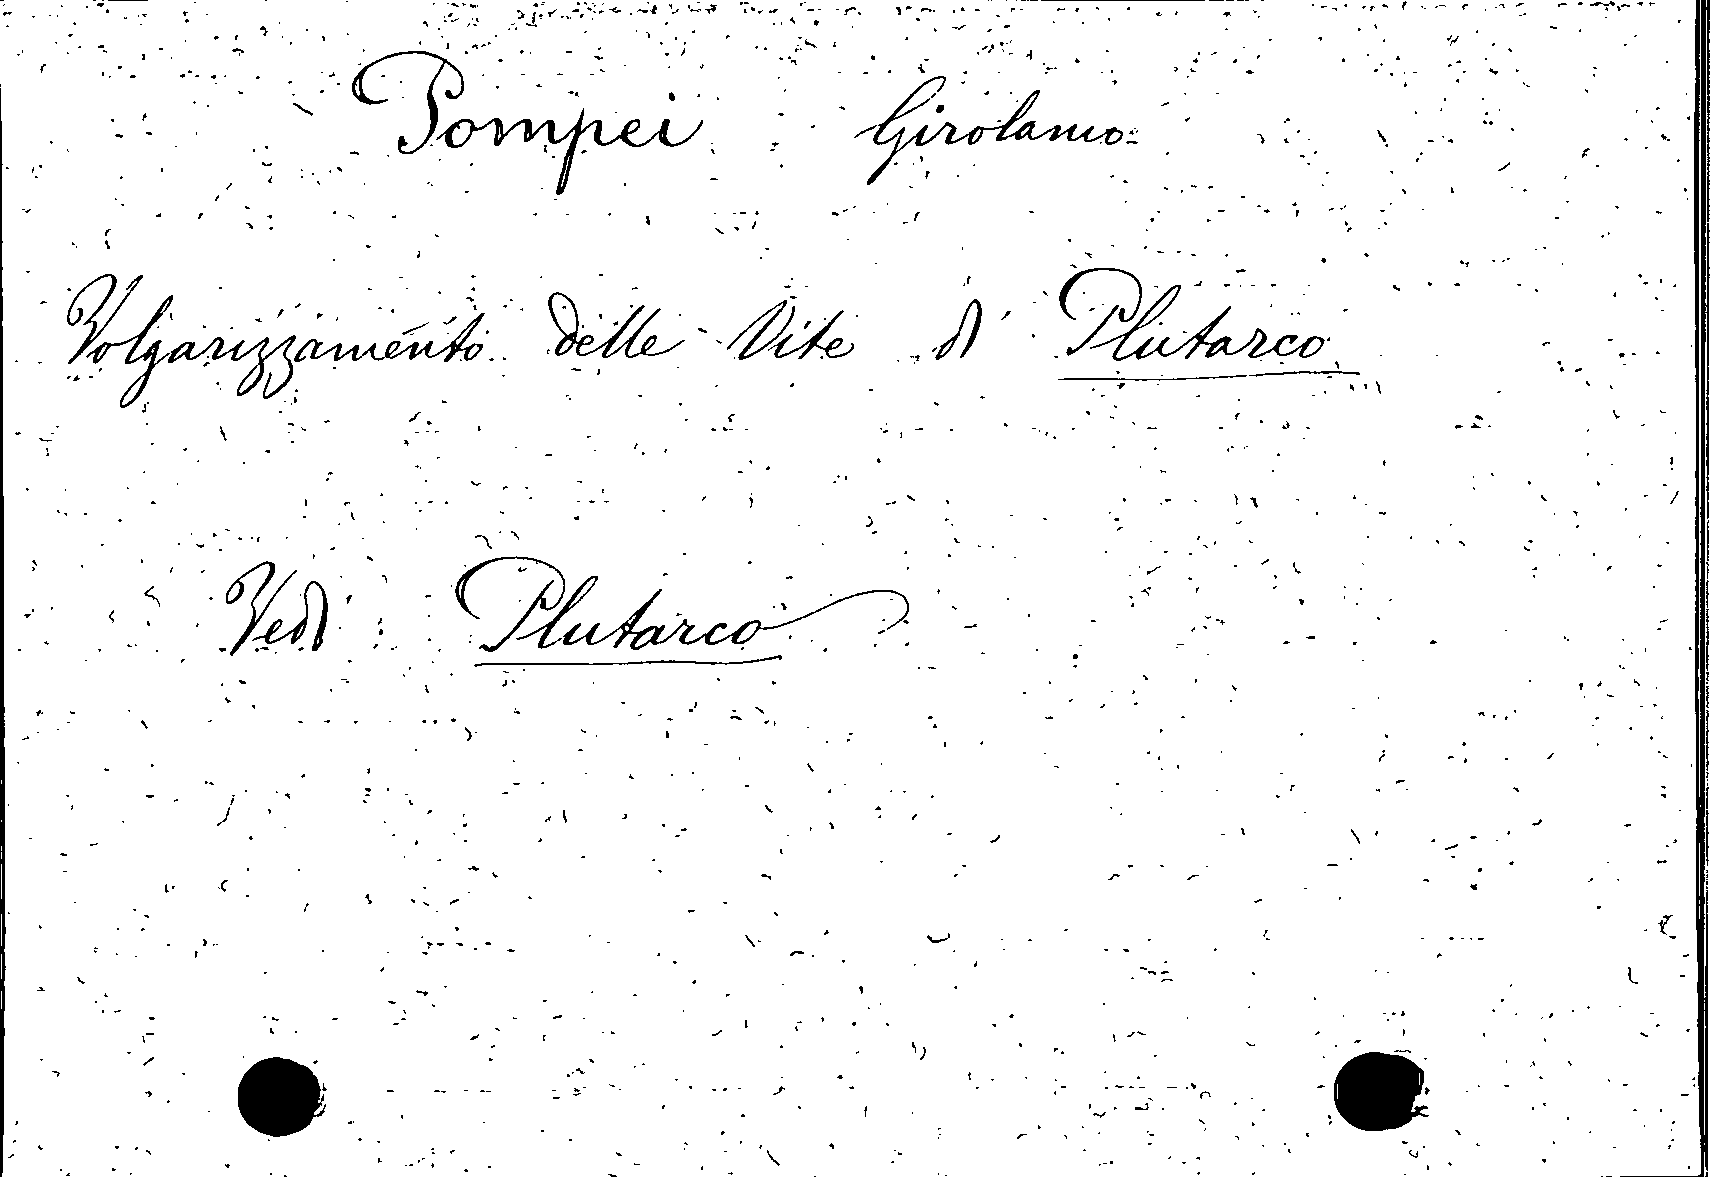 Pompei Girolamo:
Volgarizzamento delle Vite di Plutarco
Vedi Plutarco